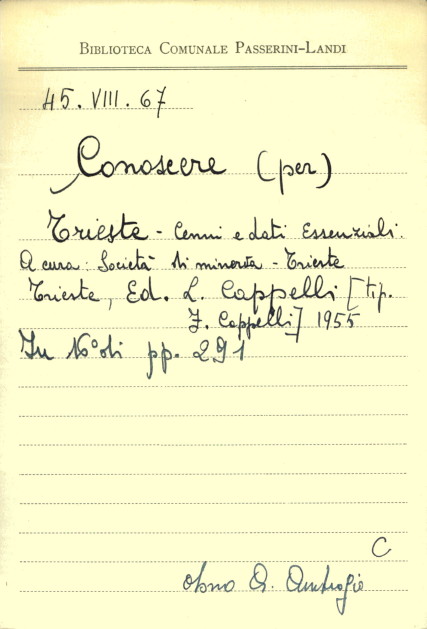 BIBLIOTECA COMUNALE PASSERINI-LANDI
45. VIII. 67
Conoscere (per)
Trieste - Cenni e dati Essenziali.
A cura: Società di minerva - Trieste
Trieste, Ed. L. Cappelli [tip.
F. Cappelli] 1955
In 16° di pp. 291
C
A. Ambrogio